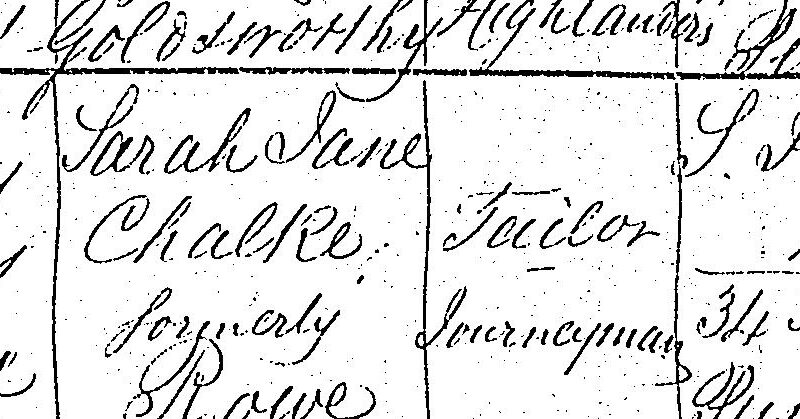 Goldsworthy Highlanders
Sarah Jane S.
Chalke Tailor
formerly Journeyman 34
Rowe